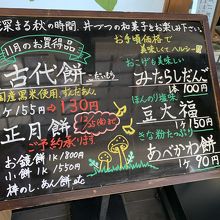 深まる秋の時間、一片づつの和菓子をお楽しみ下さい。
11月のお買得品
古代餅
国産黒米使用、ずんだあん。
1ヶ155円→130円
正月餅
ご予約承ります。
12/25(㊎)まで
お鏡餅 1K 1800円
小餅 1K 1550円
棒のし、あん餅 etc
お手頃価格で
美味しくて、ヘルシー
おこげも美味しい
みたらしだんご
1本 100円
ほんのり塩味
豆大福
1ヶ150円
きな粉たっぷり
あべかわ餅
1ヶ90円